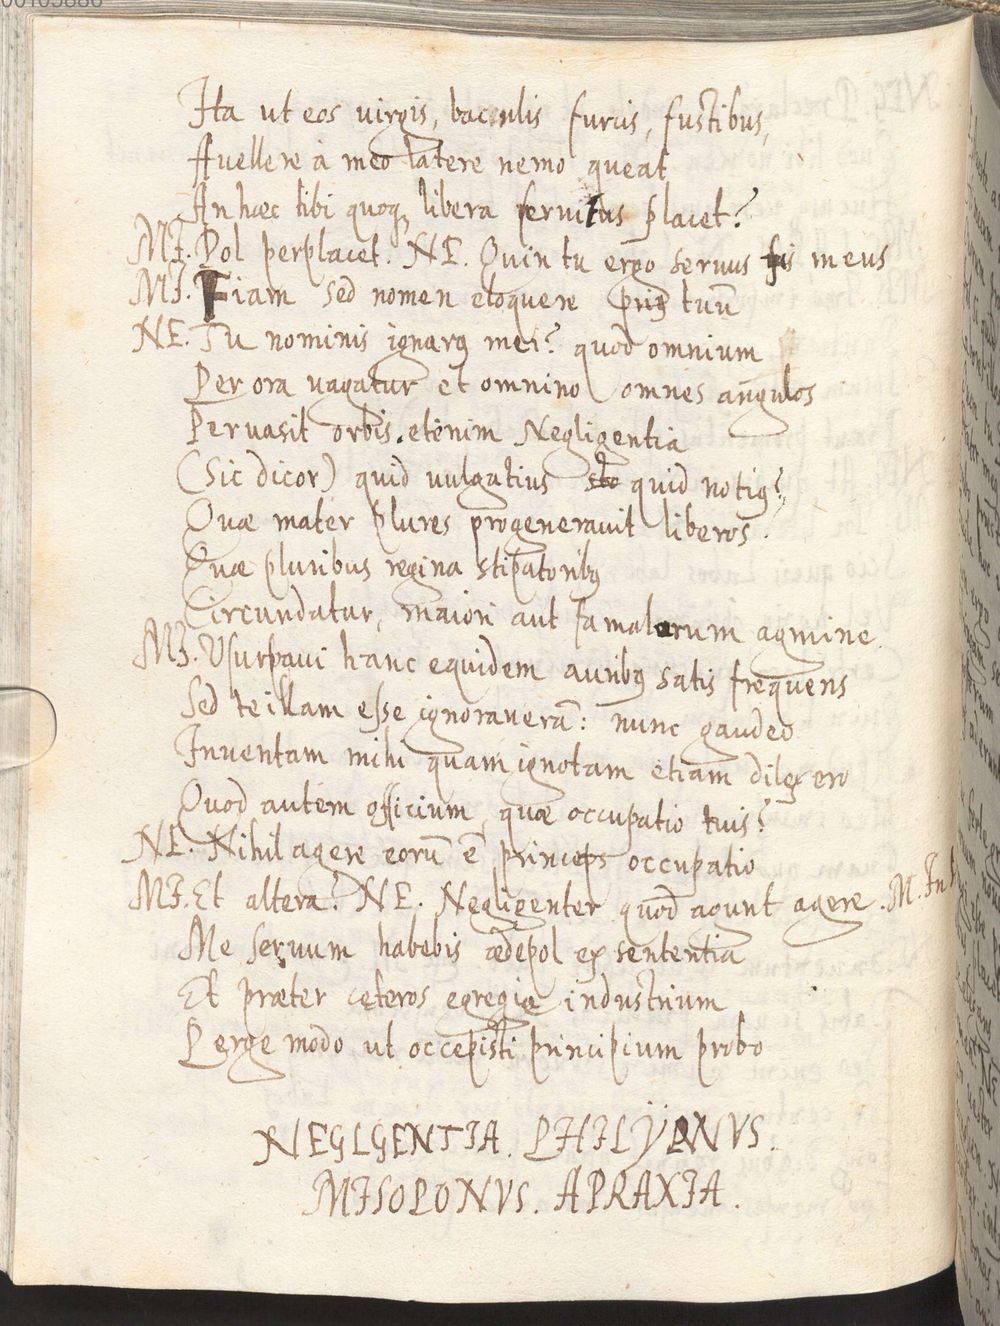 Ita ut eos virgis, baculis furcis, fustibus,
Avellere à meo latere nemo queat
An hæc tibi quoq₃ libera servitus placet?
MI. Pol perplacet. NE. Quin tu ergo servus sis meus
MI. Fiam sed nomen eloquere priꝰ tuū
NE. Tu nominis ignarꝰ mei? quod omnium
Per ora vagatur et omnino omnes angulos
Pervasit orbis. etenim Negligentia
(Sic dicor) quid vulgatius quid notiꝰ?
Quæ mater plures progeneravit liberos.
Quæ pluribus regina stipatoribꝰ
Circundatur, maiori aut famularum agmine
MI. Usurpavi hanc equidem auribꝰ satis frequens
Sed te illam esse ignoraverā: nunc gaudeo
Inventam mihi quam ignotam etiam dilexero
Quod autem officium, quæ occupatio tuis?
NE. Nihil agere eorū ē princeps occupatio
MI. Et altera? NE. Negligenter quod agunt agere. M.
Me servum habebis ædepol ex sententia
Et præter ceteros egregie industrium
Perge modo ut occepisti principium probo
NEGLGENTIA. PHILYPNVS.
MISOPONVS. APRAXIA.